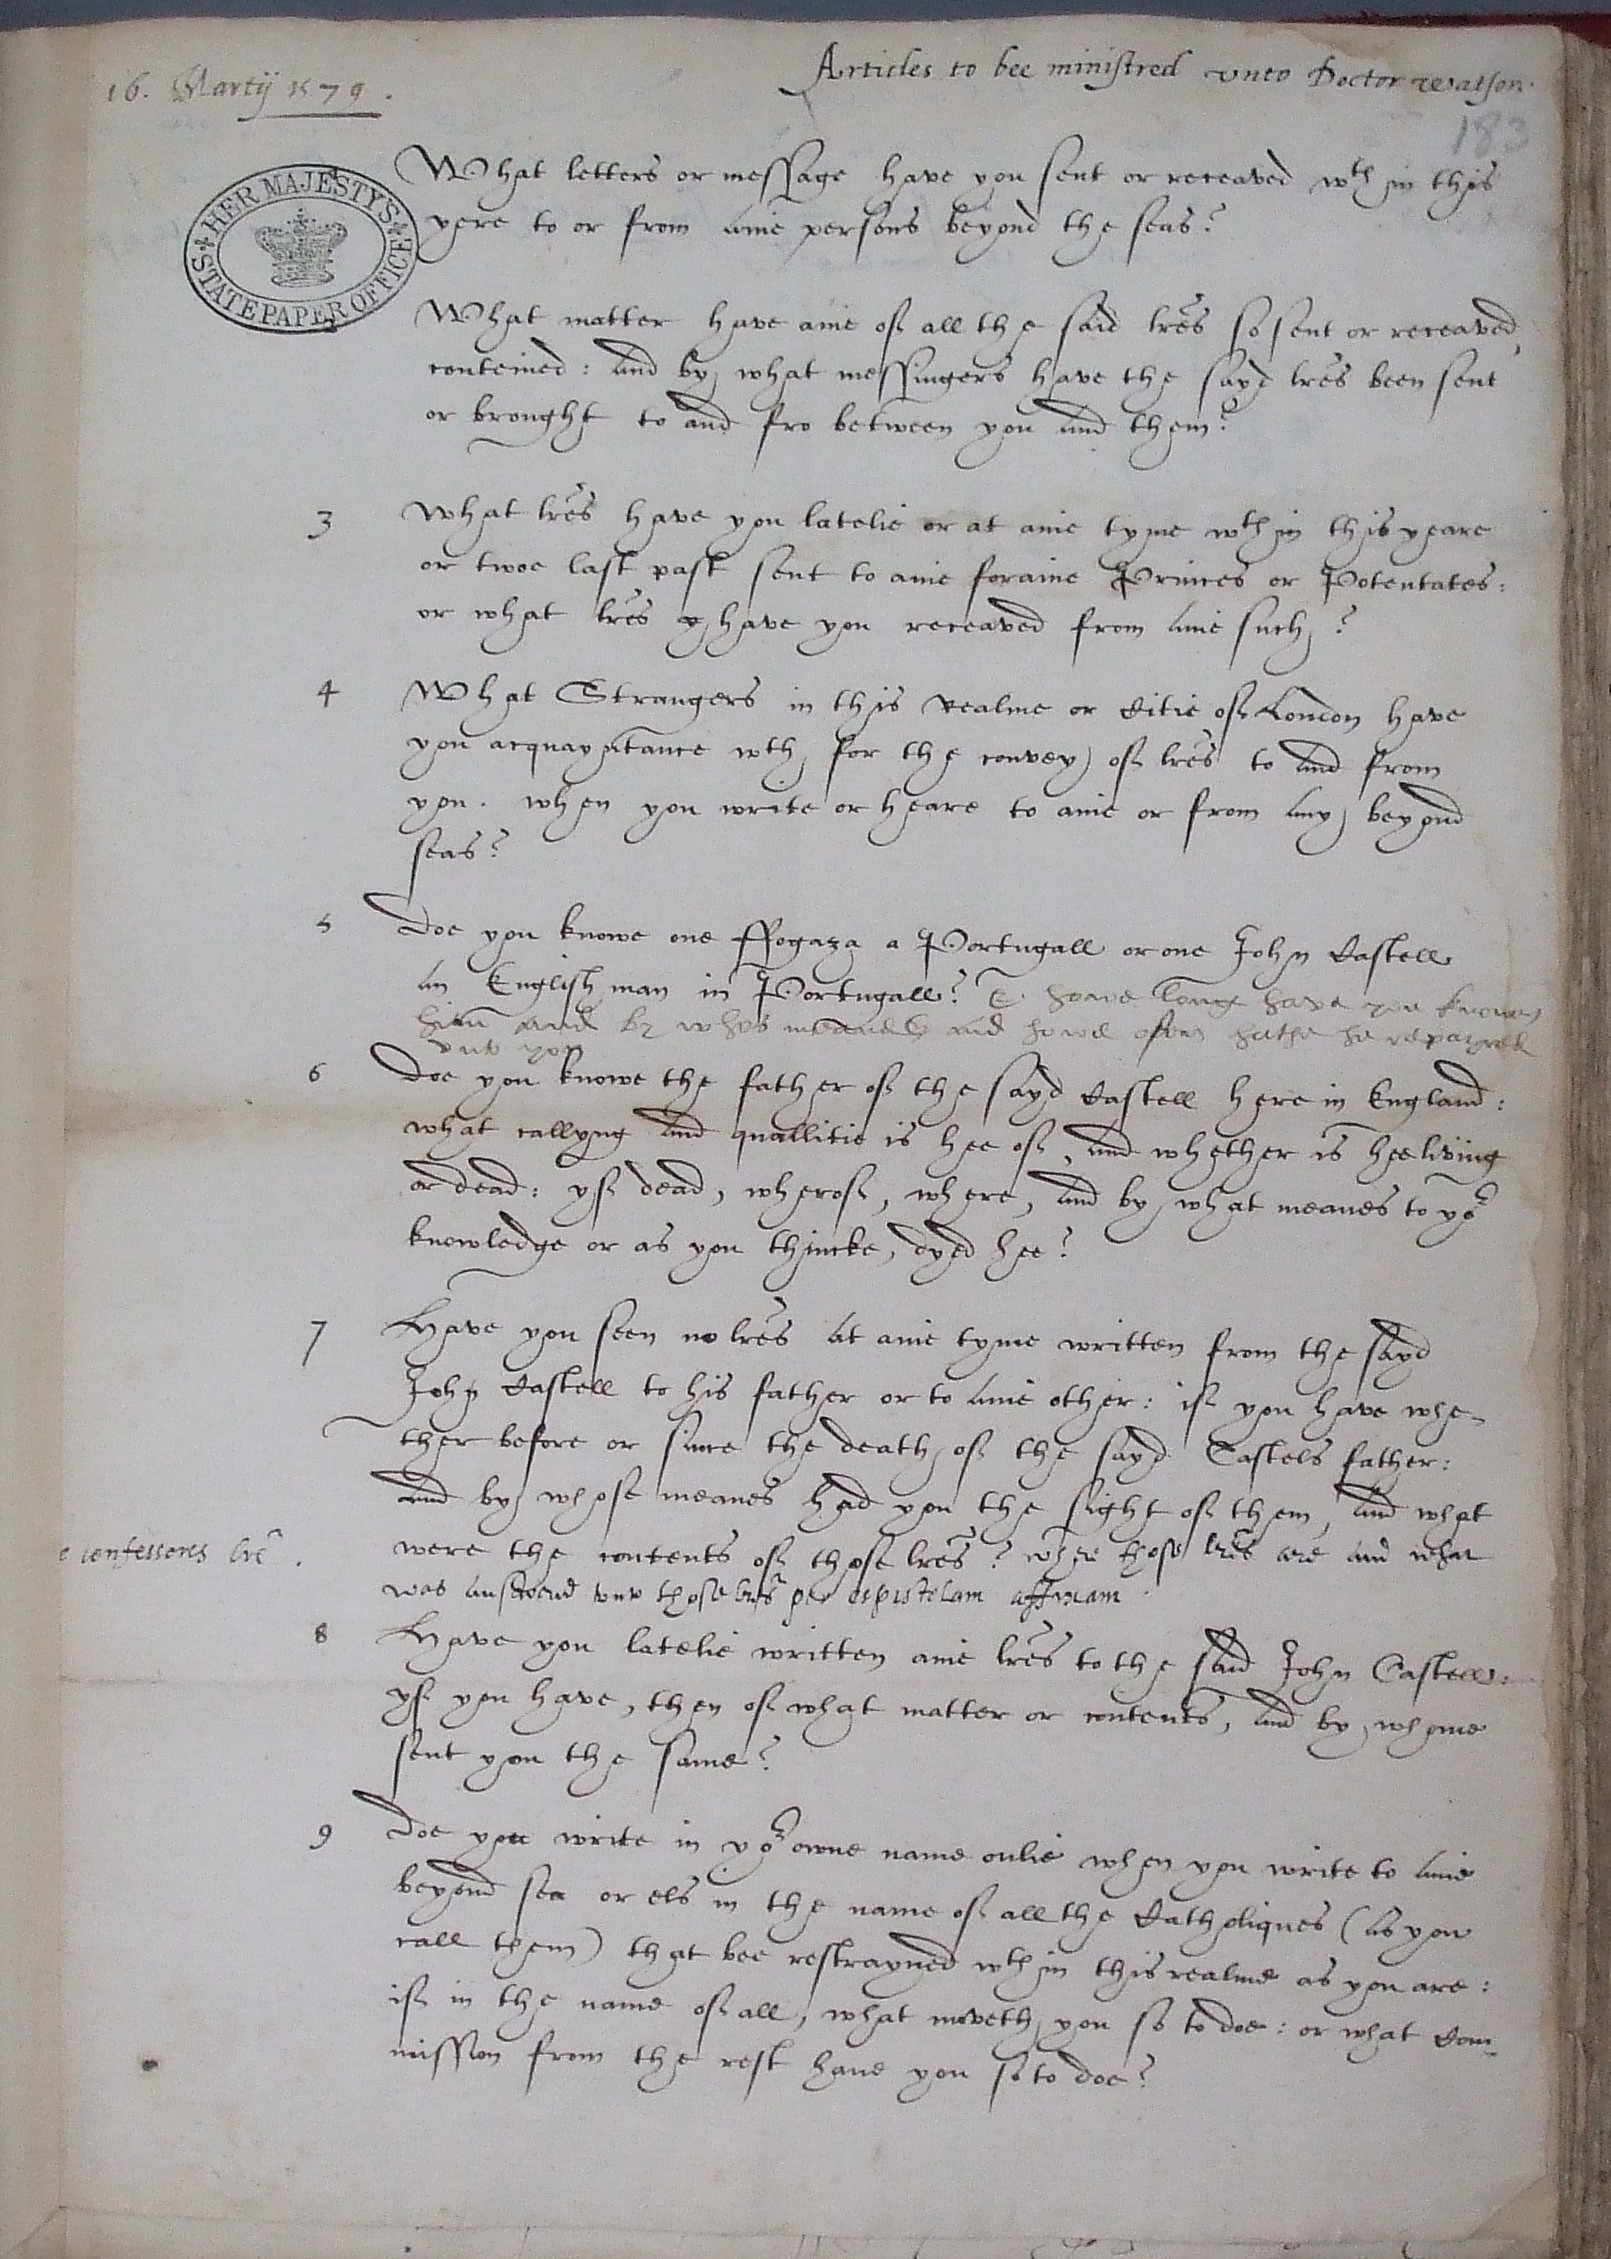 Articles to bee ministred vnto Doctor Watson.
16. Martij 1579.
183
HER MAJESTYS
STATE PAPER OFFICE
What letters or message have you sent or receaved wth in this
yere to or from anie persons beyond the seas?
What matter have anie of all the said lres so sent or receaved,
conteined: and by what messingers have the sayd lres been sent
or brought to and fro between you and them?
3 What lres have you latelie or at anie tyme wth in this yeare
or twoe last past sent to anie foraine Princes or Potentates:
or what lres have you receaved from anie such?
4 What Strangers in this Realme or Citie of London have
you acquayntance wth, for the convey of lres to and from
you. when you write or heare to anie or from any beyond
seas?
5 Doe you knowe one ffogaza a Portugall or one John Castell
an English man in Portugall? & howe long have you knowen
him and by whos meanes and howe often hathe he repayred
vnto you
6 Doe you knowe the father of the sayd Castell here in England:
what callyng and quallitie is hee of, and whether is hee living
or dead: yf dead, wherof, where, and by what meanes to yor
knowledge or as you thincke, dyed hee?
7 Have you seen no lres at anie tyme written from the sayd
John Castell to his father or to anie other: if you have whe-
ther before or since the death of the sayd Castels father:
and by whose meanes had you the sight of them, and what
were the contents of those lres? wher those lres are and what
was answered vnto those lres per epistolam
confessores lre.
8 Have you latelie written anie lres to the said John Castell:
yf you have, then of what matter or contents, and by whome
sent you the same?
9 Doe you write in yor owne name onlie when you write to anie
beyond sea or els in the name of all the Catholiques (as you
call them) that bee restrayned wth in this realme as you are:
if in the name of all, what moveth you so to doe: or what Com-
mission from the rest have you so to doe?